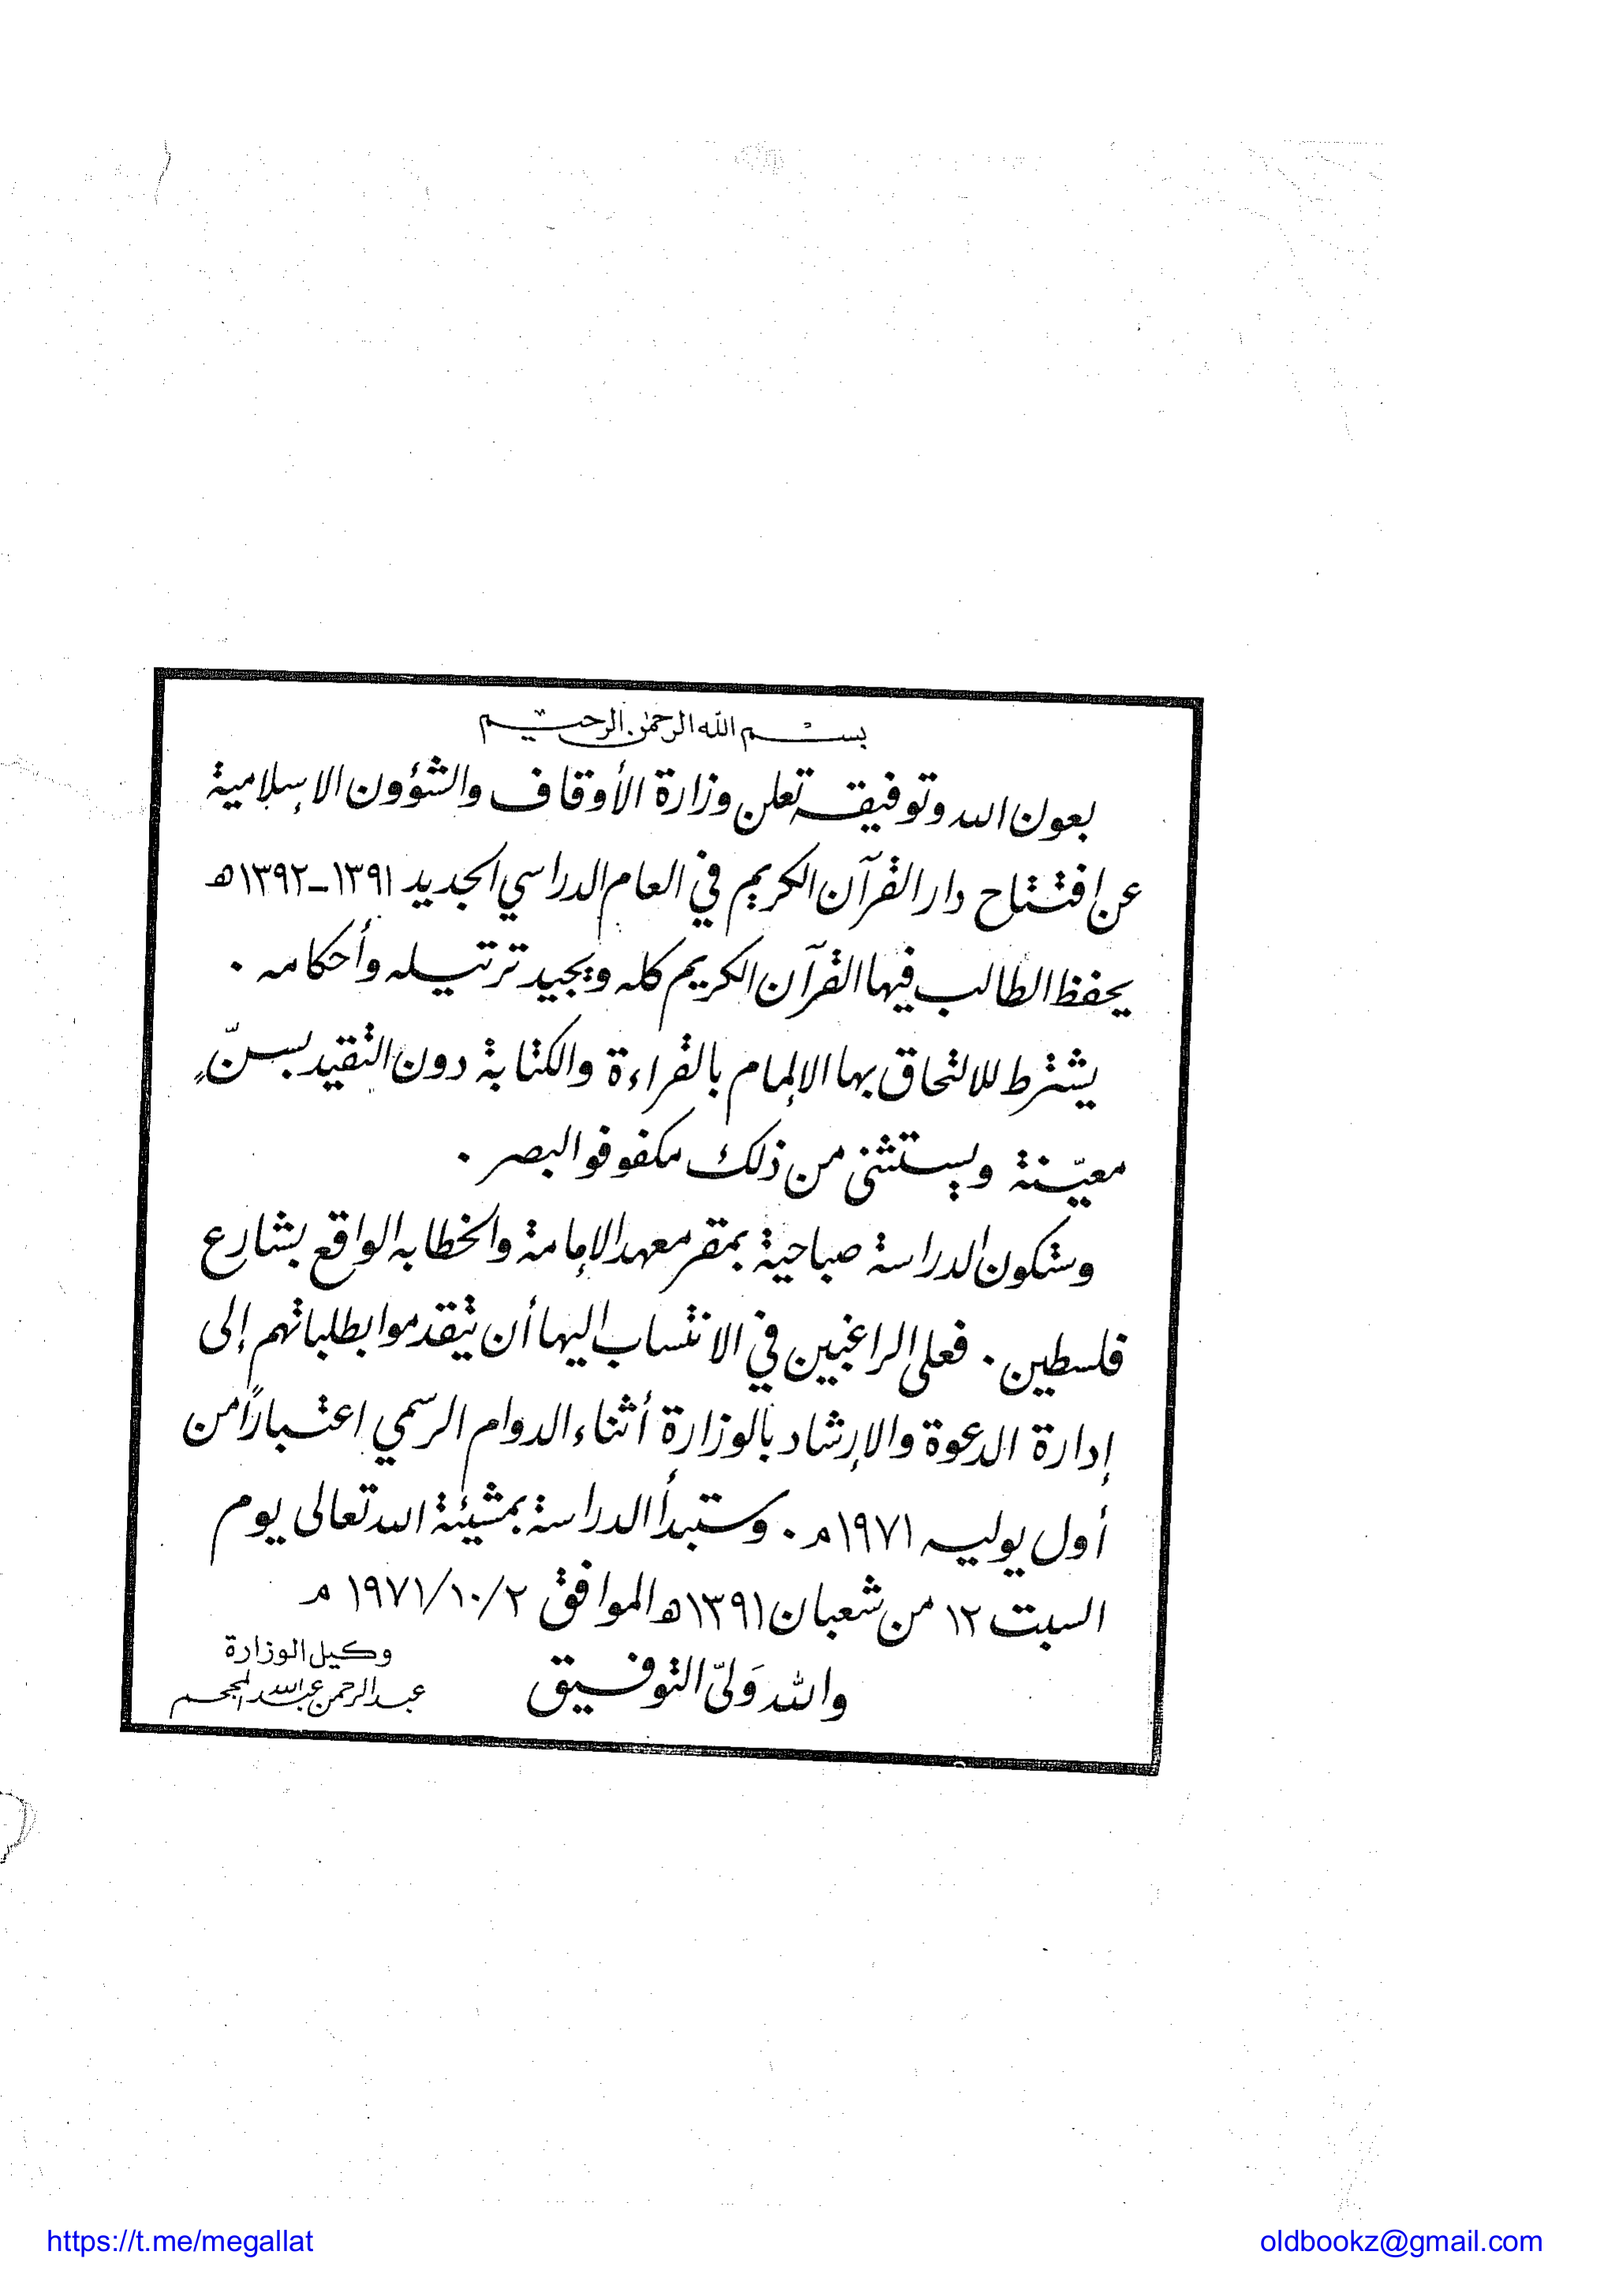 بسم الله الرحمن الرحيم
بعون الله وتوفيقه تعلن وزارة الأوقاف والشؤون الإسلامية
عن افتتاح دار القرآن الكريم في العام الدراسي الجديد ١٣٩١-١٣٩٢ه
يحفظ الطالب فيها القرآن الكريم كله ويجيد ترتيله وأحكامه .
يشترط للالتحاق بها الإلمام بالقراءة والكتابة دون التقيد بسنّ
معيّنة ويستثنى من ذلك مكفوفو البصر .
وستكون الدراسة صباحية بمقر معهد الإمامة والخطابه الواقع بشارع
فلسطين . فعلى الراغبين في الانتساب اليها أن يتقدموا بطلباتهم إلى
إدارة الدعوة والإرشاد بالوزارة أثناء الدوام الرسمي اعتباراً من
أول يوليه ١٩٧١م . وستبدأ الدراسة بمشيئة الله تعالى يوم
السبت ١٢ من شعبان ١٣٩١ه الموافق ١٩٧١/١٠/٢ م
والله وَليّ التوفيق
وكيل الوزارة
عبد الرحمن عبد الله المجحم
https://t.me/megallat
oldbookz@gmail.com